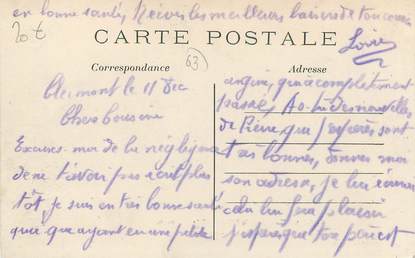 en bonne santé, Recois les meilleurs baisers de ton cousin
20 €
Loire
CARTE POSTALE
63
Correspondance
Adresse
Clermont le 11 Dec
Cher Cousine
Excuses-moi de la négligence
de ne t'avoir pas écrit plus
tôt je suis en très bonne santé
quoi que ayant eu une petite
angine, qui a complètement
passée, As-tu des nouvelles
de Pierre, que j'espère sont
très bonnes, donnes moi
son adresse, je lui écrirai
cela lui fera plaisir
j'espère que ton père est